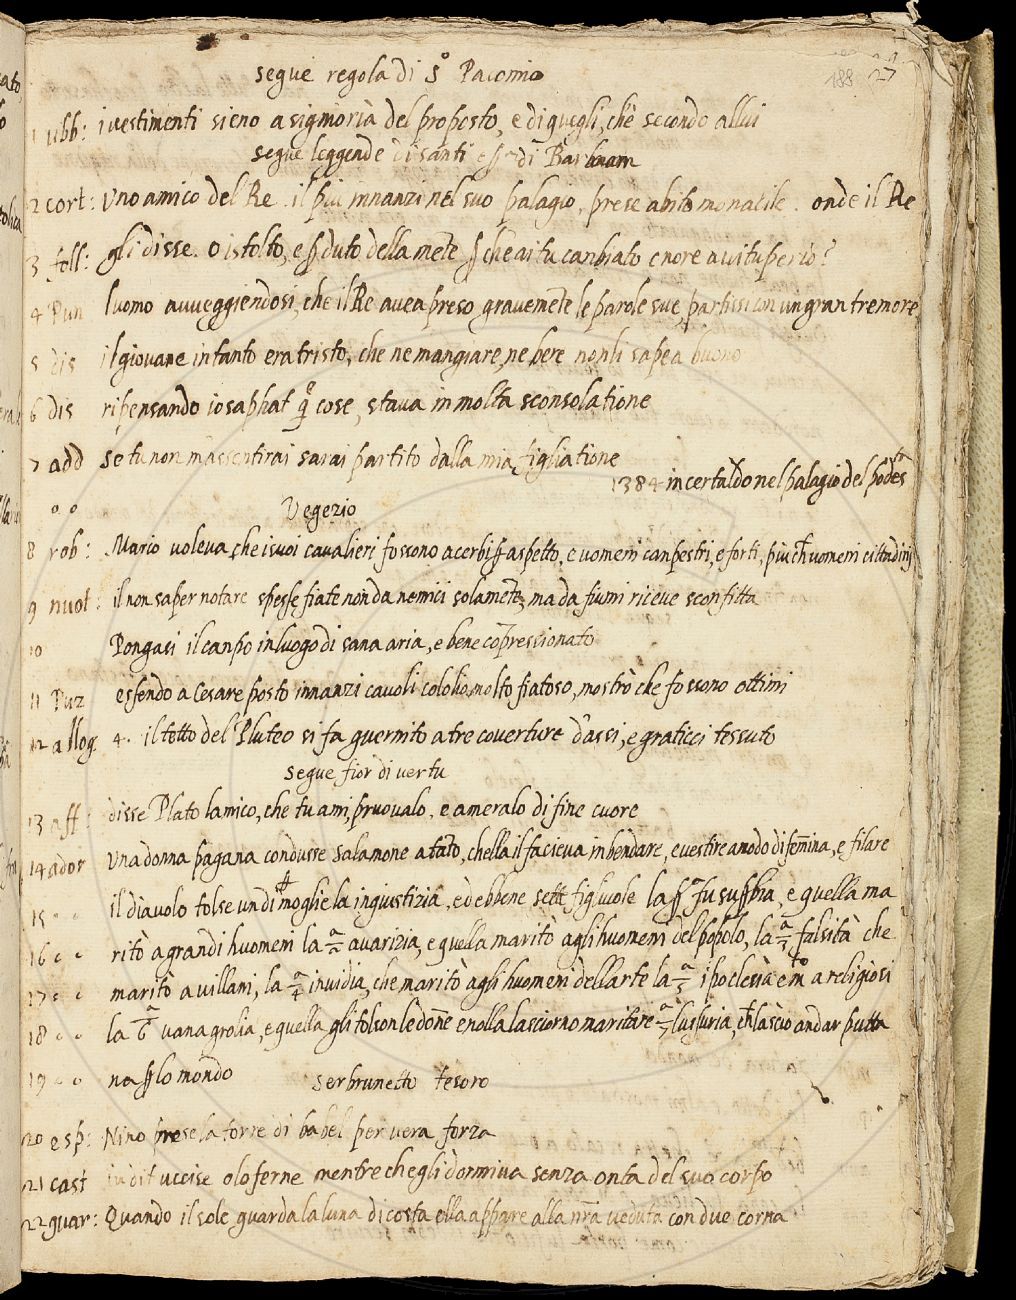 188 27
segue regola di S.º Pacomio
1 ubb: i vestimenti sieno a signoria del proposto, e di quegli, che secondo allui
segue leggende di santi e p.ª di Barlaam
2 cort: Uno amico del Re . il più innanzi nel suo palagio, prese abito monacile . onde il Re
3 foll: gli disse . o istolto, e pduto della mete pche ai tu canbiato enore a vituperio?
4 Pun luomo avveggiendosi, che il Re avea preso gravemete le parole sue, partissi con un gran tremore
5 dis il giovane intanto era tristo, che ne mangiare, ne bere nonli sapea buono
6 dis ripensando iosaphat qº cose, stava in molta sconsolatione
7 add se tu non massentirai sarai partito dalla mia figliatione
1384 in certaldo nel palagio del podesta
° ° Vegezio
8 rob: Mario voleva, che i suoi cavalieri fossono acerbi p aspetto, e uomeni canpestri, e forti, piu ch uomeni cittadini
9 nuot: il non saper notare spesse fiate non da nemici solamete, ma da fiumi riceve sconfitta
10 Pongasi il canpo in luogo di sana aria, e bene copressionato
11 Puz essendo a Cesare posto innanzi cavoli cololio molto fiatoso, mostrò che fossono ottimi
12 allog 4. il tetto del Pluteo si fa guernito a tre coverture d'assi, e graticci tessuto
segue fior di vertu
13 aff: disse Plato lamico, che tu ami, pruovalo . e ameralo di fine cuore
14 ador Una donna pagana condusse Salamone a tato, chella il facieva inbendare, e vestire a modo di femina, e filare
15 ° ° il diavolo tolse un di p moglie la ingiustizia, ed ebbene sette figliuole la pª fu supbia, e quella ma
16 ° ° ritò a grandi huomeni la 2ª avarizia, e quella maritò agli huomeni del popolo, la 3ª falsità che
17 ° ° maritò a villani, la 4ª invidia, che maritò agli huomeni dellarte la 5ª ipoclesia e mtò a religiosi
18 ° ° la 6ª vana grolia, e quella gli tolson le done e nolla lasciorno maritare 7ª lussuria, ch lasciò andar putta
19 ° ° na p lo mondo ser brunetto tesoro
20 esp: Nino prese la torre di babel per vera forza
21 cast iudit uccise oloferne mentre chegli dormiva senza onta del suo corpo
22 guar: Quando il sole guarda la luna di costa ella appare alla nra veduta con due corna